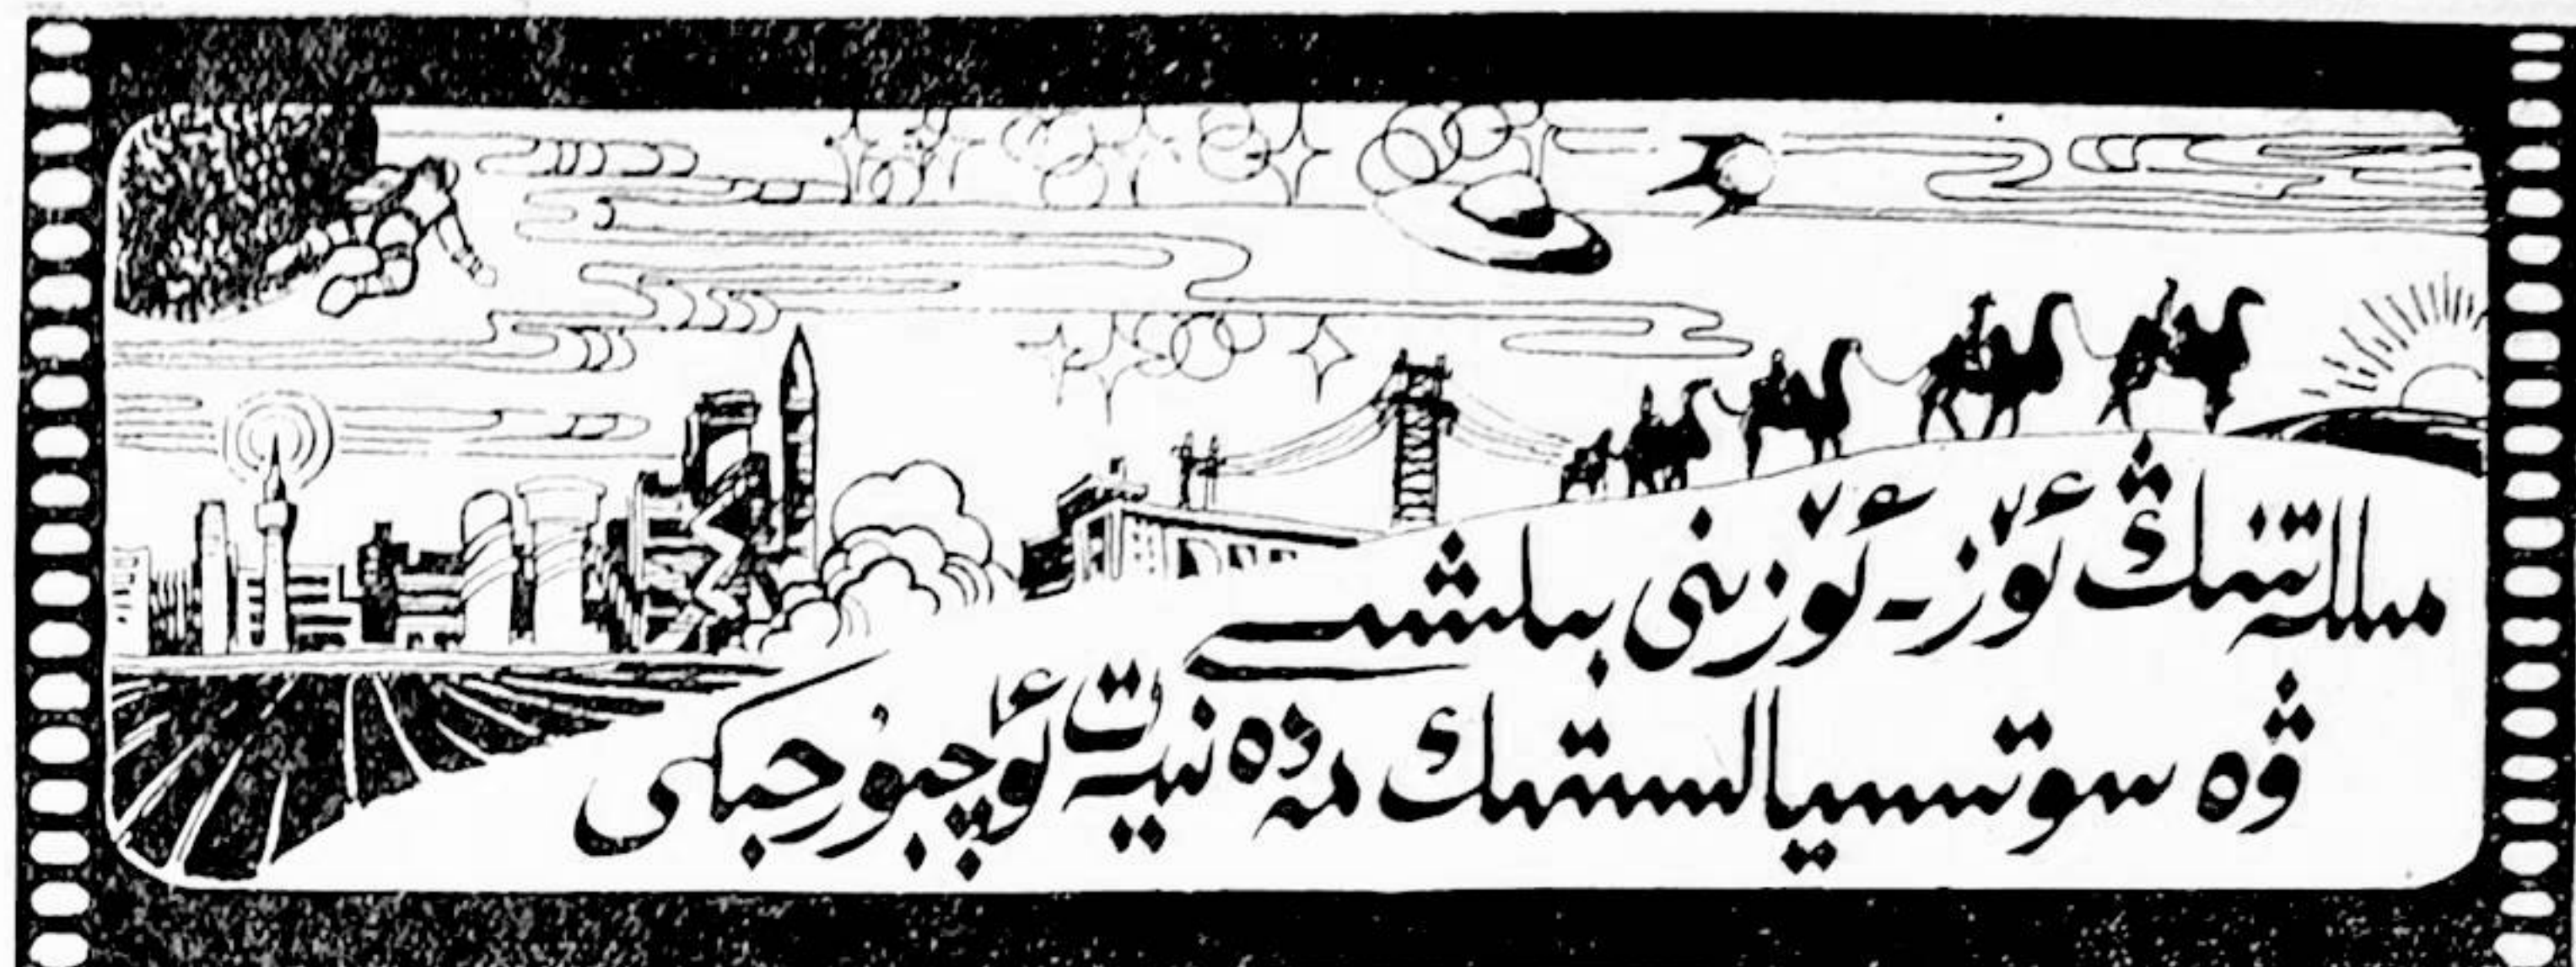 مىللەتنىڭ ئۆز - ئۆزىنى بىلىشى
ۋە سوتسىيالىستىك مەدەنىيەت ئۈچبۇرجىكى